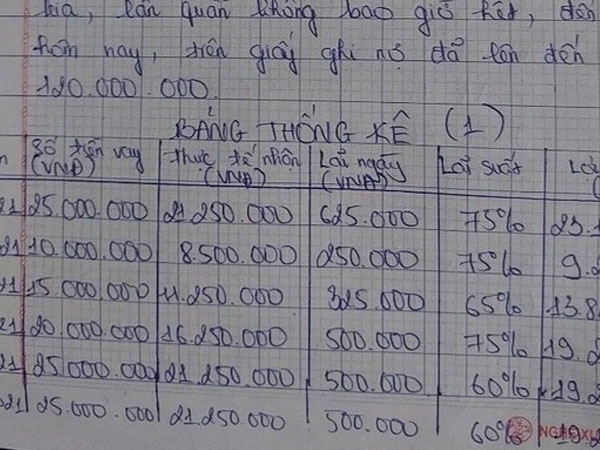 kia, lẩn quẩn không bao giờ hết, đến
hôm nay, trên giấy ghi nợ đã lên đến
120.000.000
BẢNG THỐNG KÊ (1)
Số tiền vay (VNĐ) thực tế nhận (VNĐ) Lãi ngày (VNĐ) Lãi suất
21 25.000.000 21.250.000 625.000 75% 23.1
21 10.000.000 8.500.000 250.000 75% 9.2
21 15.000.000 11.250.000 325.000 65% 13.8
21 20.000.000 16.250.000 500.000 75% 19.2
21 25.000.000 21.250.000 500.000 60% 19.2
21 25.000.000 21.250.000 500.000 60%